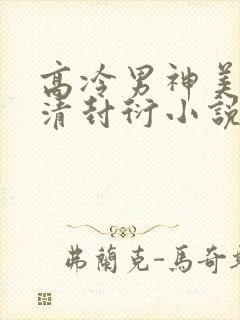 高冷男神美
清封衍小說
弗蘭克-馬奇